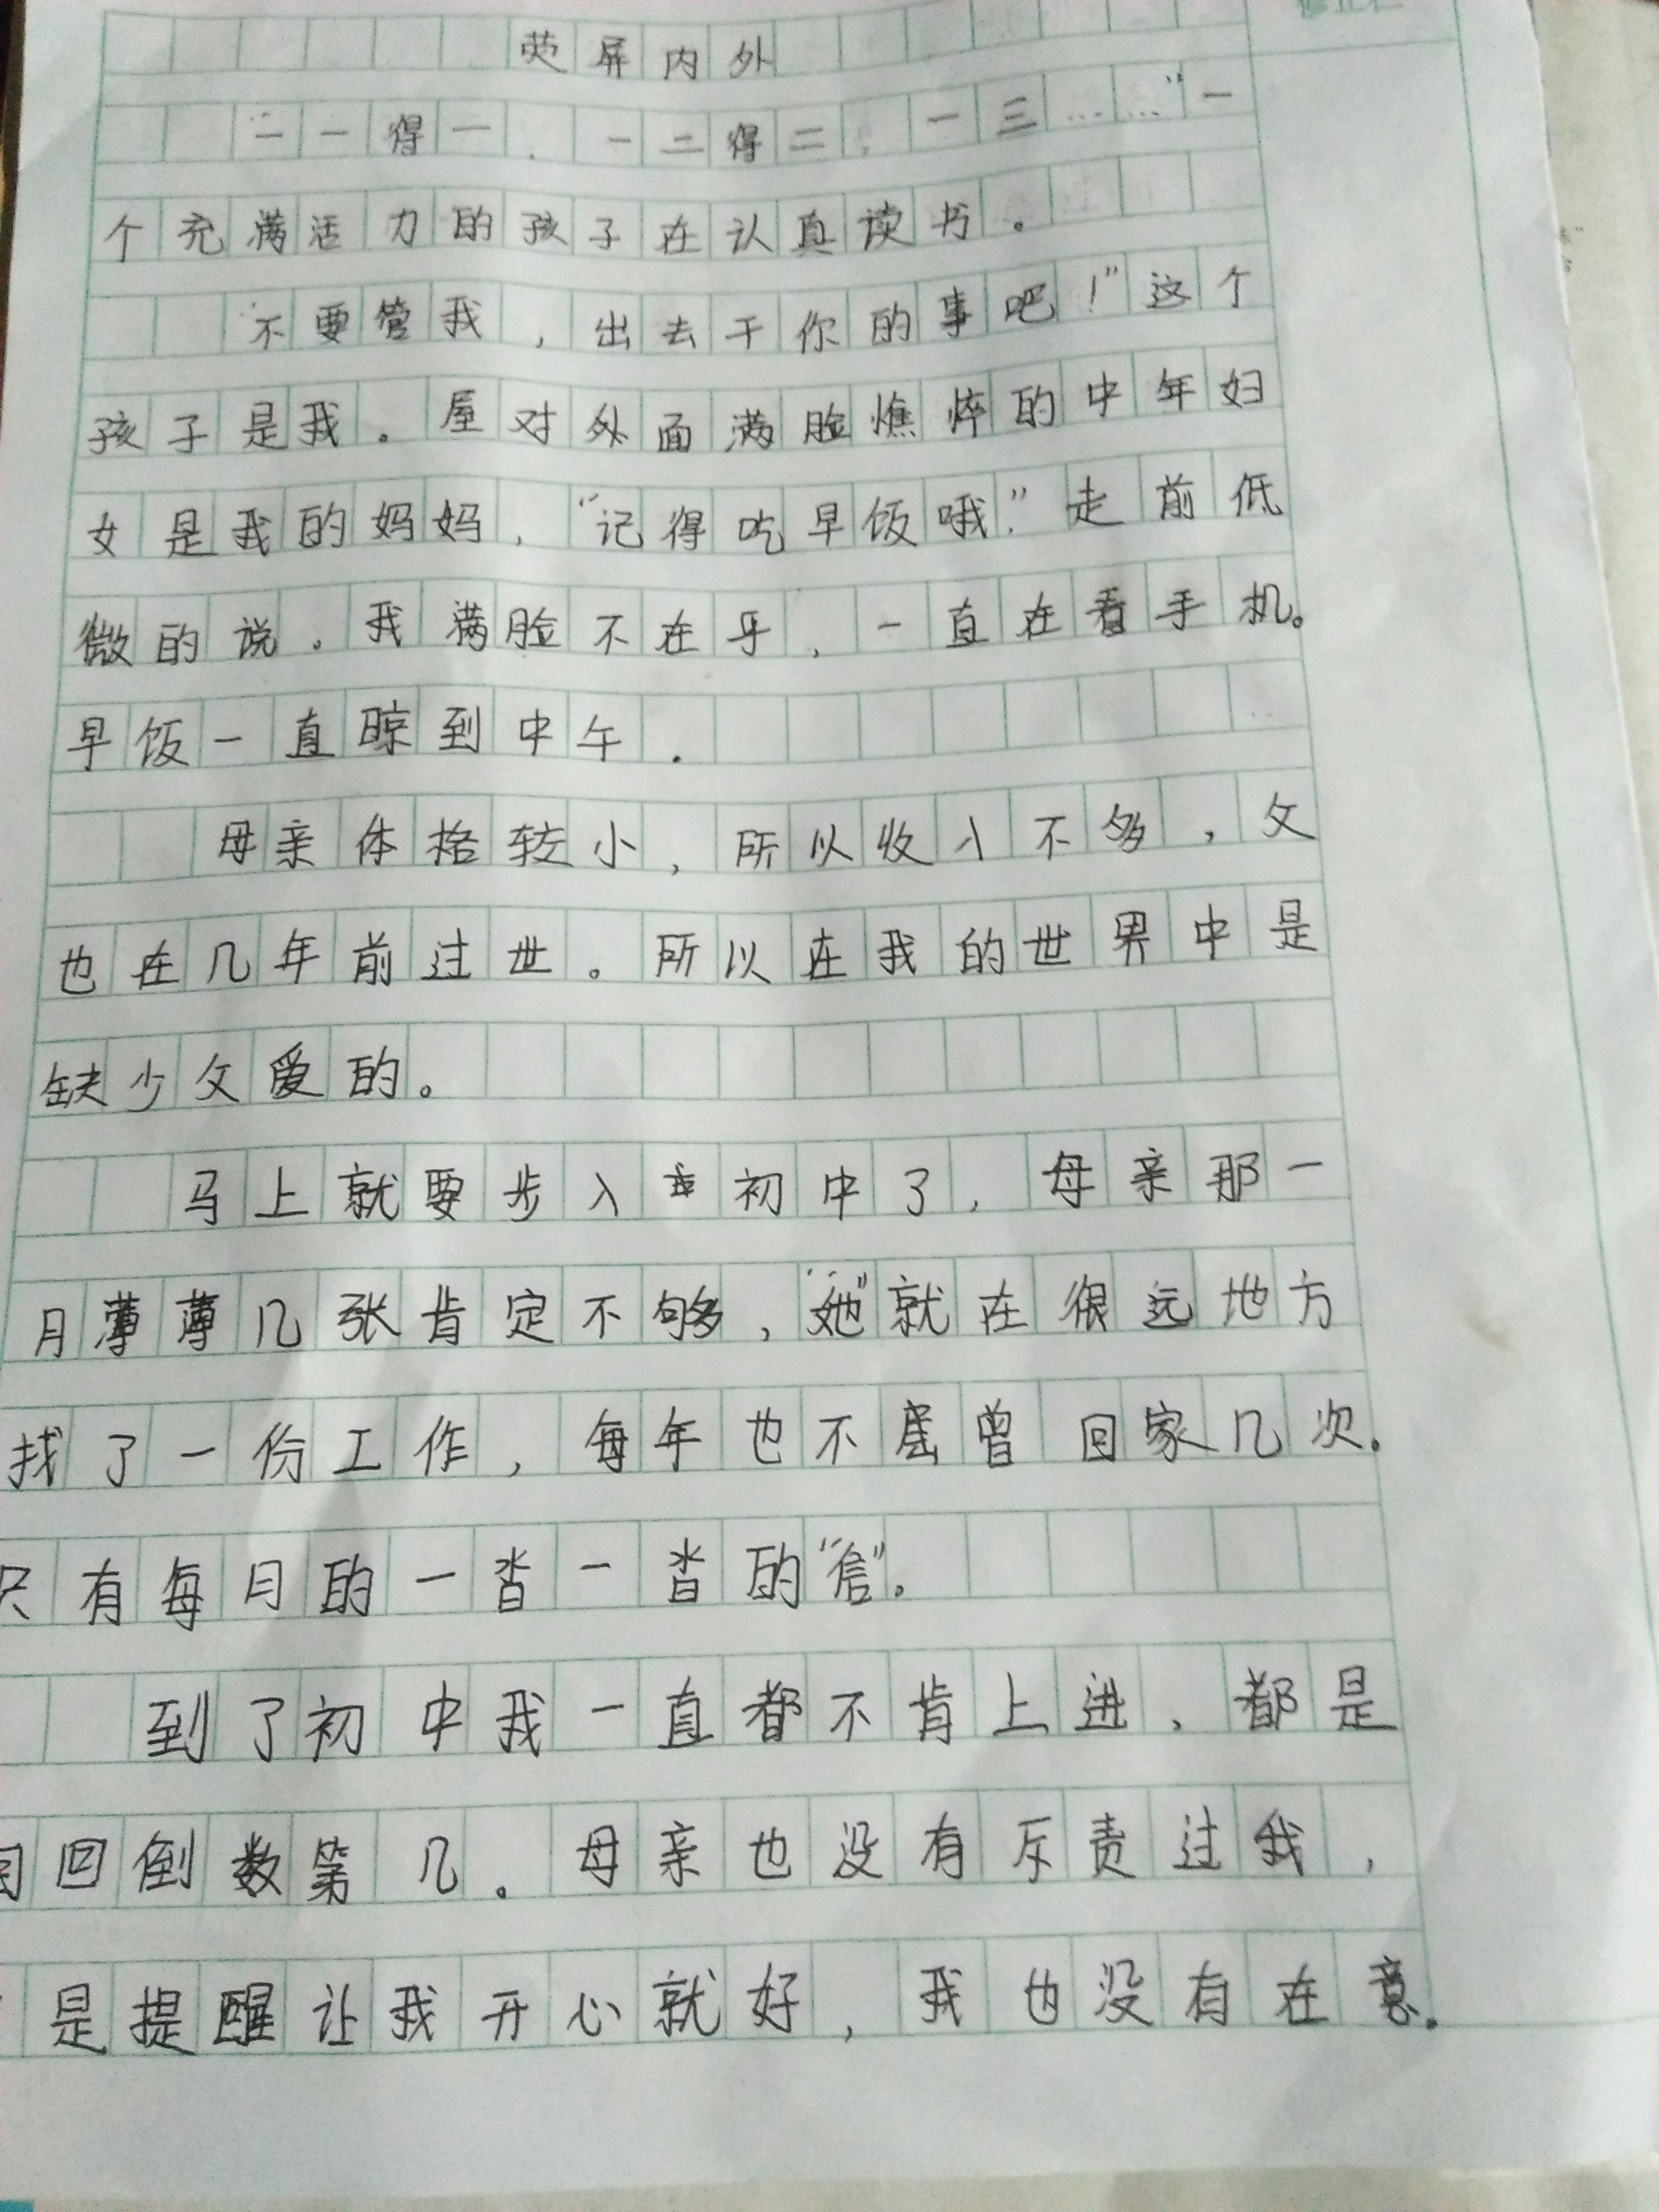 荧屏内外
“一一得一，一二得二，一三……”一
个充满活力的孩子在认真读书。
“不要管我，出去干你的事吧！”这个
孩子是我。屋对外面满脸憔悴的中年妇
女是我的妈妈，“记得吃早饭哦。”走前低
微的说。我满脸不在乎，一直在看手机。
早饭一直晾到中午。
母亲体格较小，所以收入不多，父
也在几年前过世。所以在我的世界中是
缺少父爱的。
马上就要步入初中了，母亲那一
月薄薄几张肯定不够，“她”就在很远地方
找了一份工作，每年也不曾回家几次。
只有每月的一沓一沓的“信”。
到了初中我一直都不肯上进，都是
回倒数第几。母亲也没有斥责过我，
是提醒让我开心就好，我也没有在意。